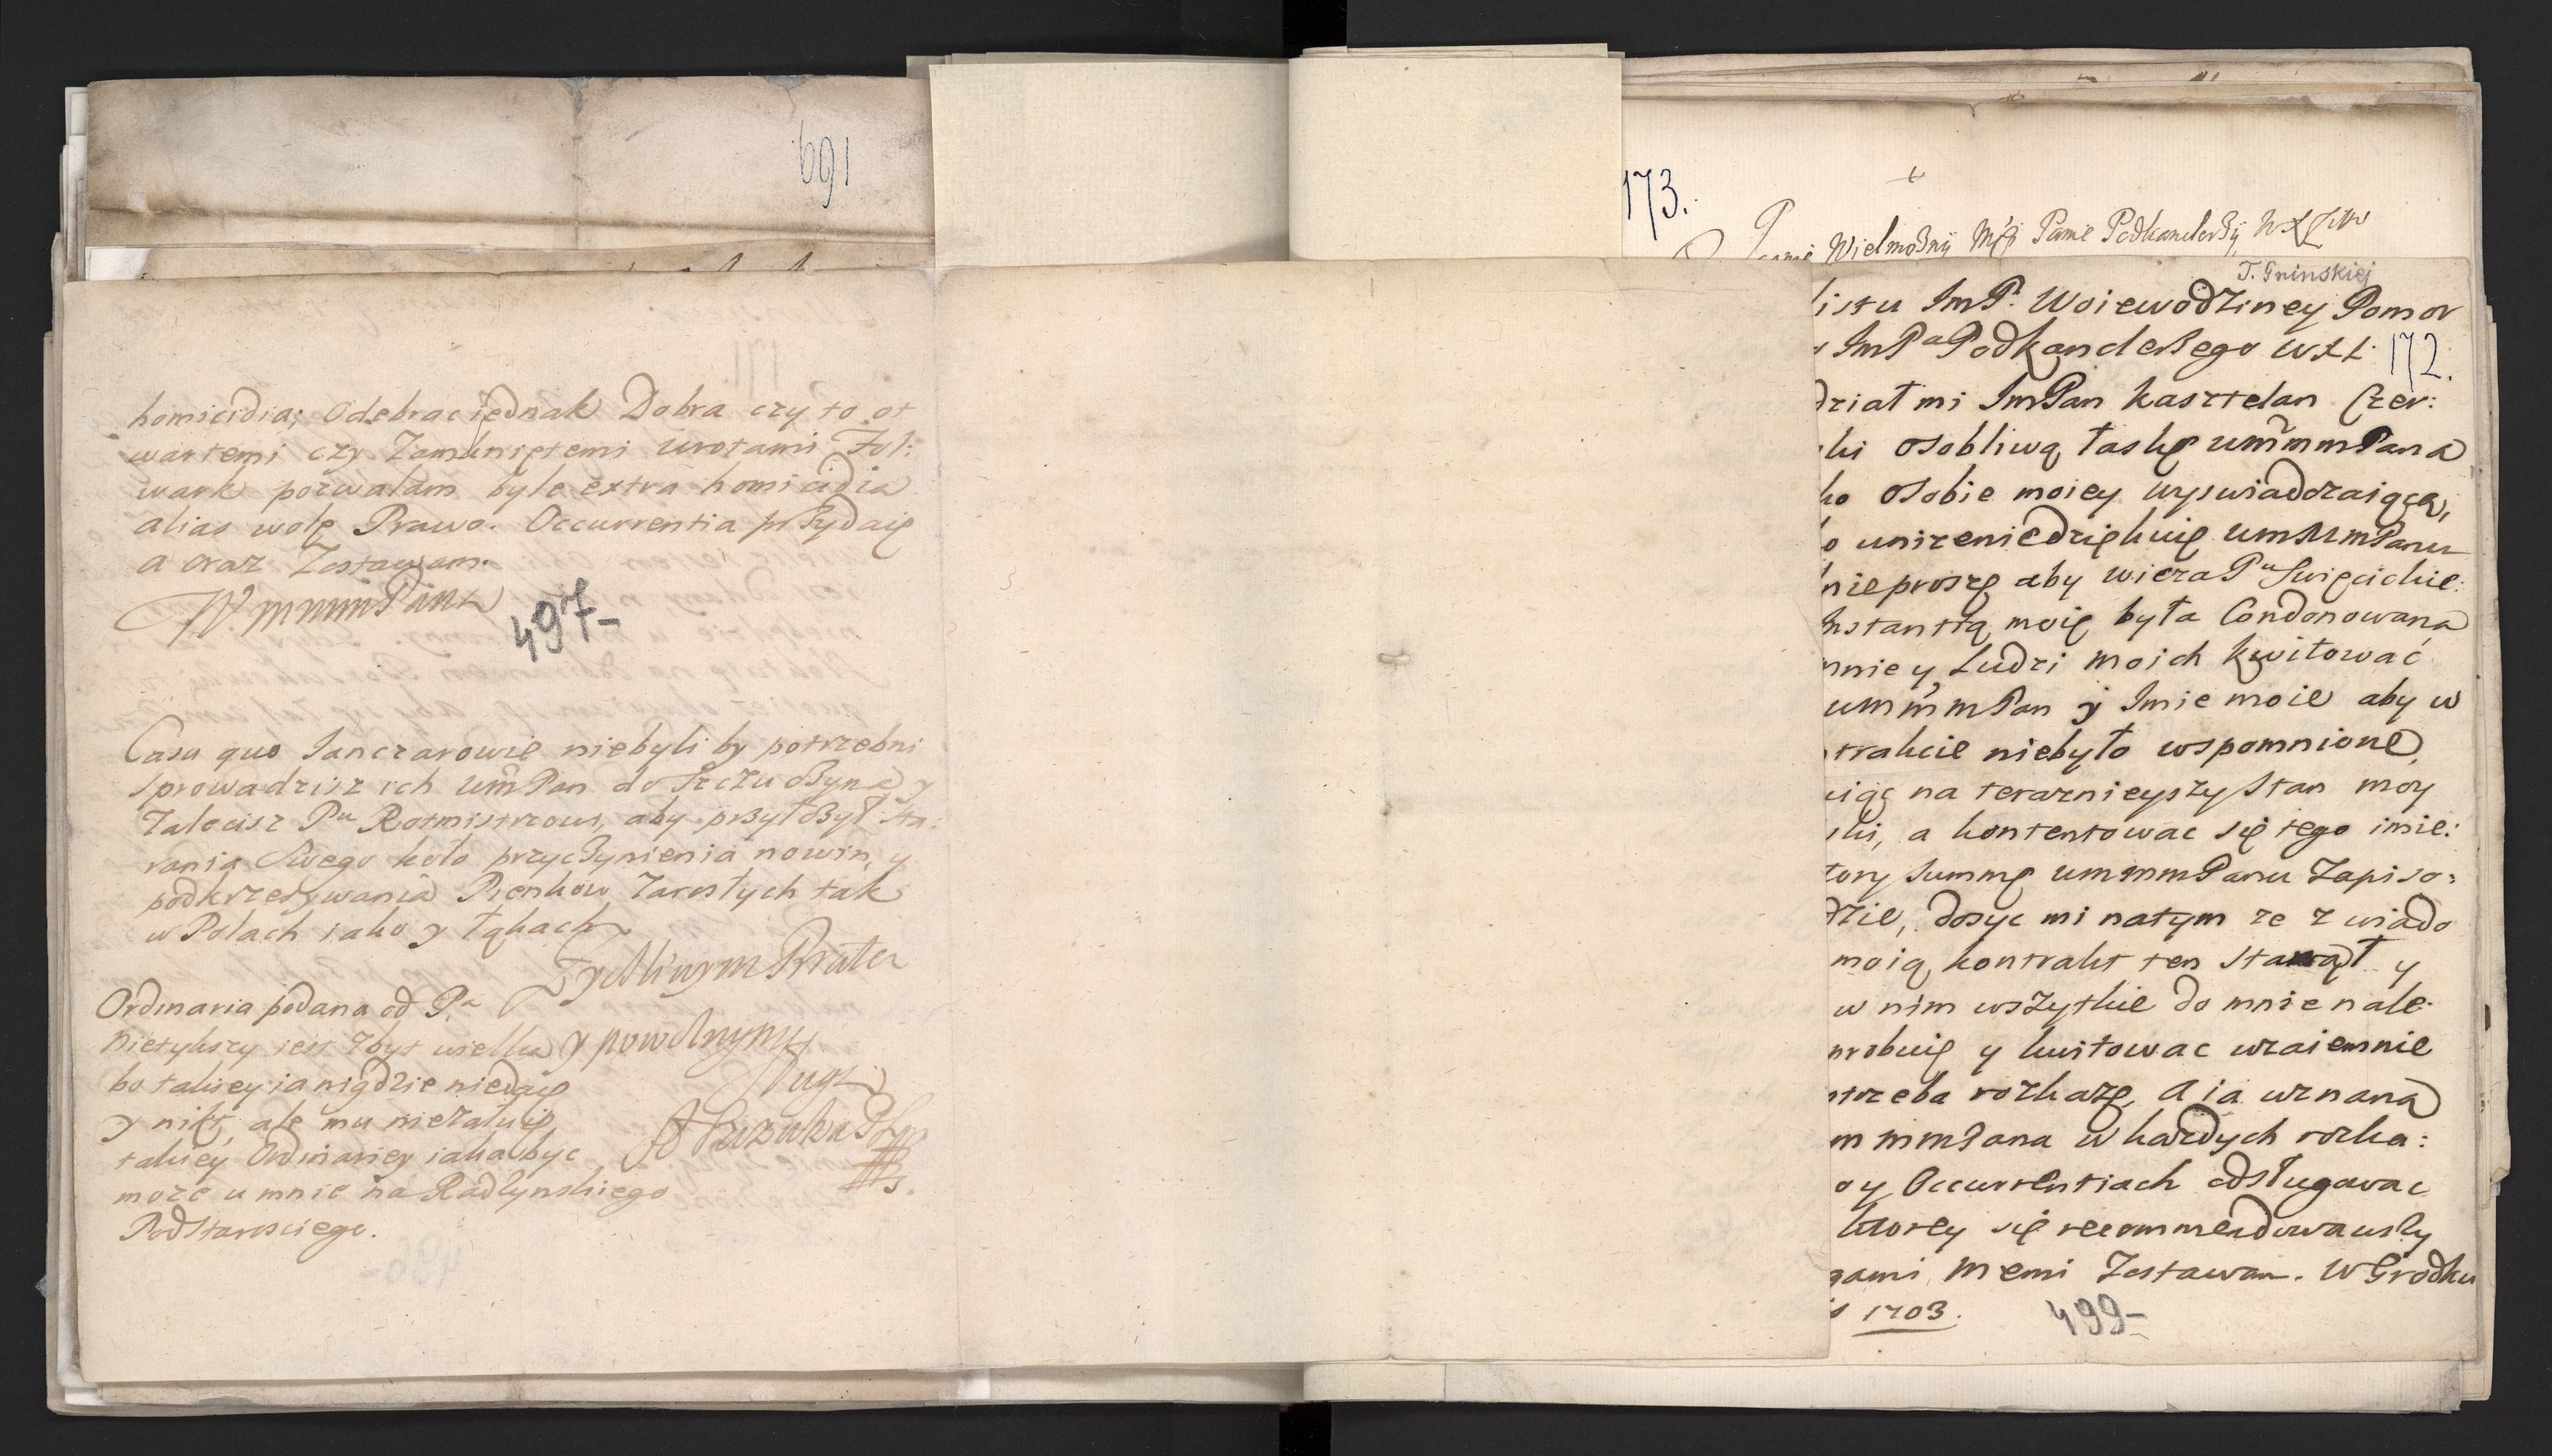 691
homicidia; Odebrac iednak Dobra czy to ot
wartemi czy Zamkniętemi wrotami Fol:
wark pozwalam byle extra homicidia
alias wolę Prawo. Occurrentia przydaię
a oraz Zostawam.
WmmmPana
497-
Casu quo Janczarowie niebyli by potrzebni
sprowadzisz ich UmPan do Szczuczyna y
Zalecisz Pu Rotmistrzowi, aby przyłożył sta:
rania Swego koło przyczynienia nowin, y
podkrzesywania Pienkow Zarosłych tak
w Polach iako y łąkach
Zyczliwym Bratem
Ordinaria podana od Pa
y powolnym
bo takiey ia nigdzie niedaię
Sługą
y nikt, ale mu nieżałuię
takiey Ordinariey iaka byc
A Szczuka
może u mnie na Radzynskiego
Podstarosciego.
173.
Panie Wielmożny Mći Panie Podkanclerzy
T. Gninskiej
listu JmP. Woiewodziney Pomor
JmPa Podkanclerzego WXL
172.
dział mi JmPan Kasztelan Czer:
ki osobliwą łaskę ummmPana
ko osobie moiey wyswiadczaiącą,
o unizenie dziękuię ummmPanu
nie proszę aby wieza Pu Swięcickie:
Instantią moię była Condonowana
mnie y Ludzi moich kwitować
ummmPan y Imie moie aby w
trakcie niebyło wspomnione
iąc na teraznieyszy stan moy
ski, a kontentowac się tego imie:
tory summę ummmPanu Zapiso:
dzie, dosyc mi natym ze z wiado
moią kontrakt ten stanął y
w nim wszytkie do mnie nale
probuię y kwitowac wzaiemnie
trzeba rozkażę, a ia uznaną
mmmPana w kazdych rozka:
y Occurrentiach odsługowac
ktorey się recommendowawszy
gami memi Zostawam. W Grodku
1703.
499-